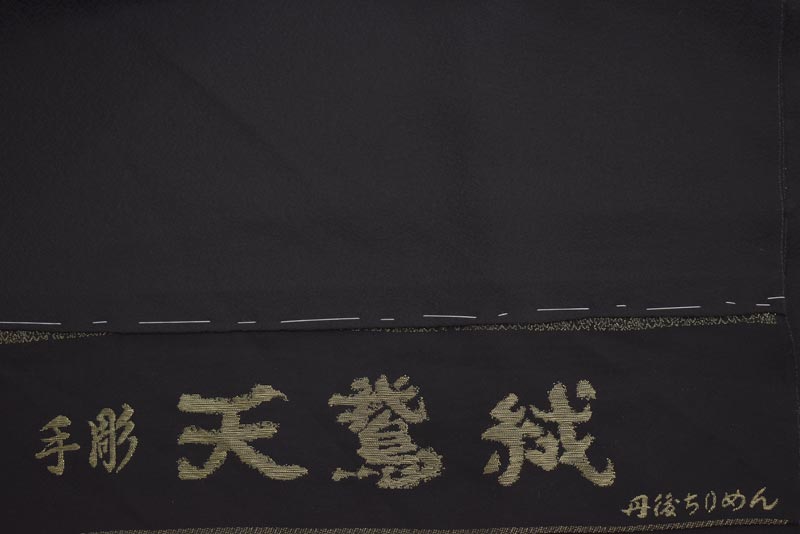 手彫 天鵞絨
丹後ちりめん